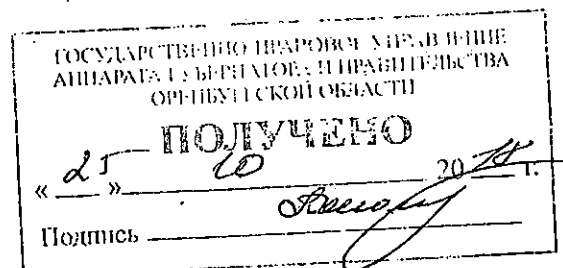 ГОСУДАРСТВЕННО ПРАВОВОЕ УПРАВЛЕНИЕ
АППАРАТА ГУБЕРНАТОРА И ПРАВИТЕЛЬСТВА
ОРЕНБУРГСКОЙ ОБЛАСТИ
ПОЛУЧЕНО
« 25 » 10 20 г.
Подпись